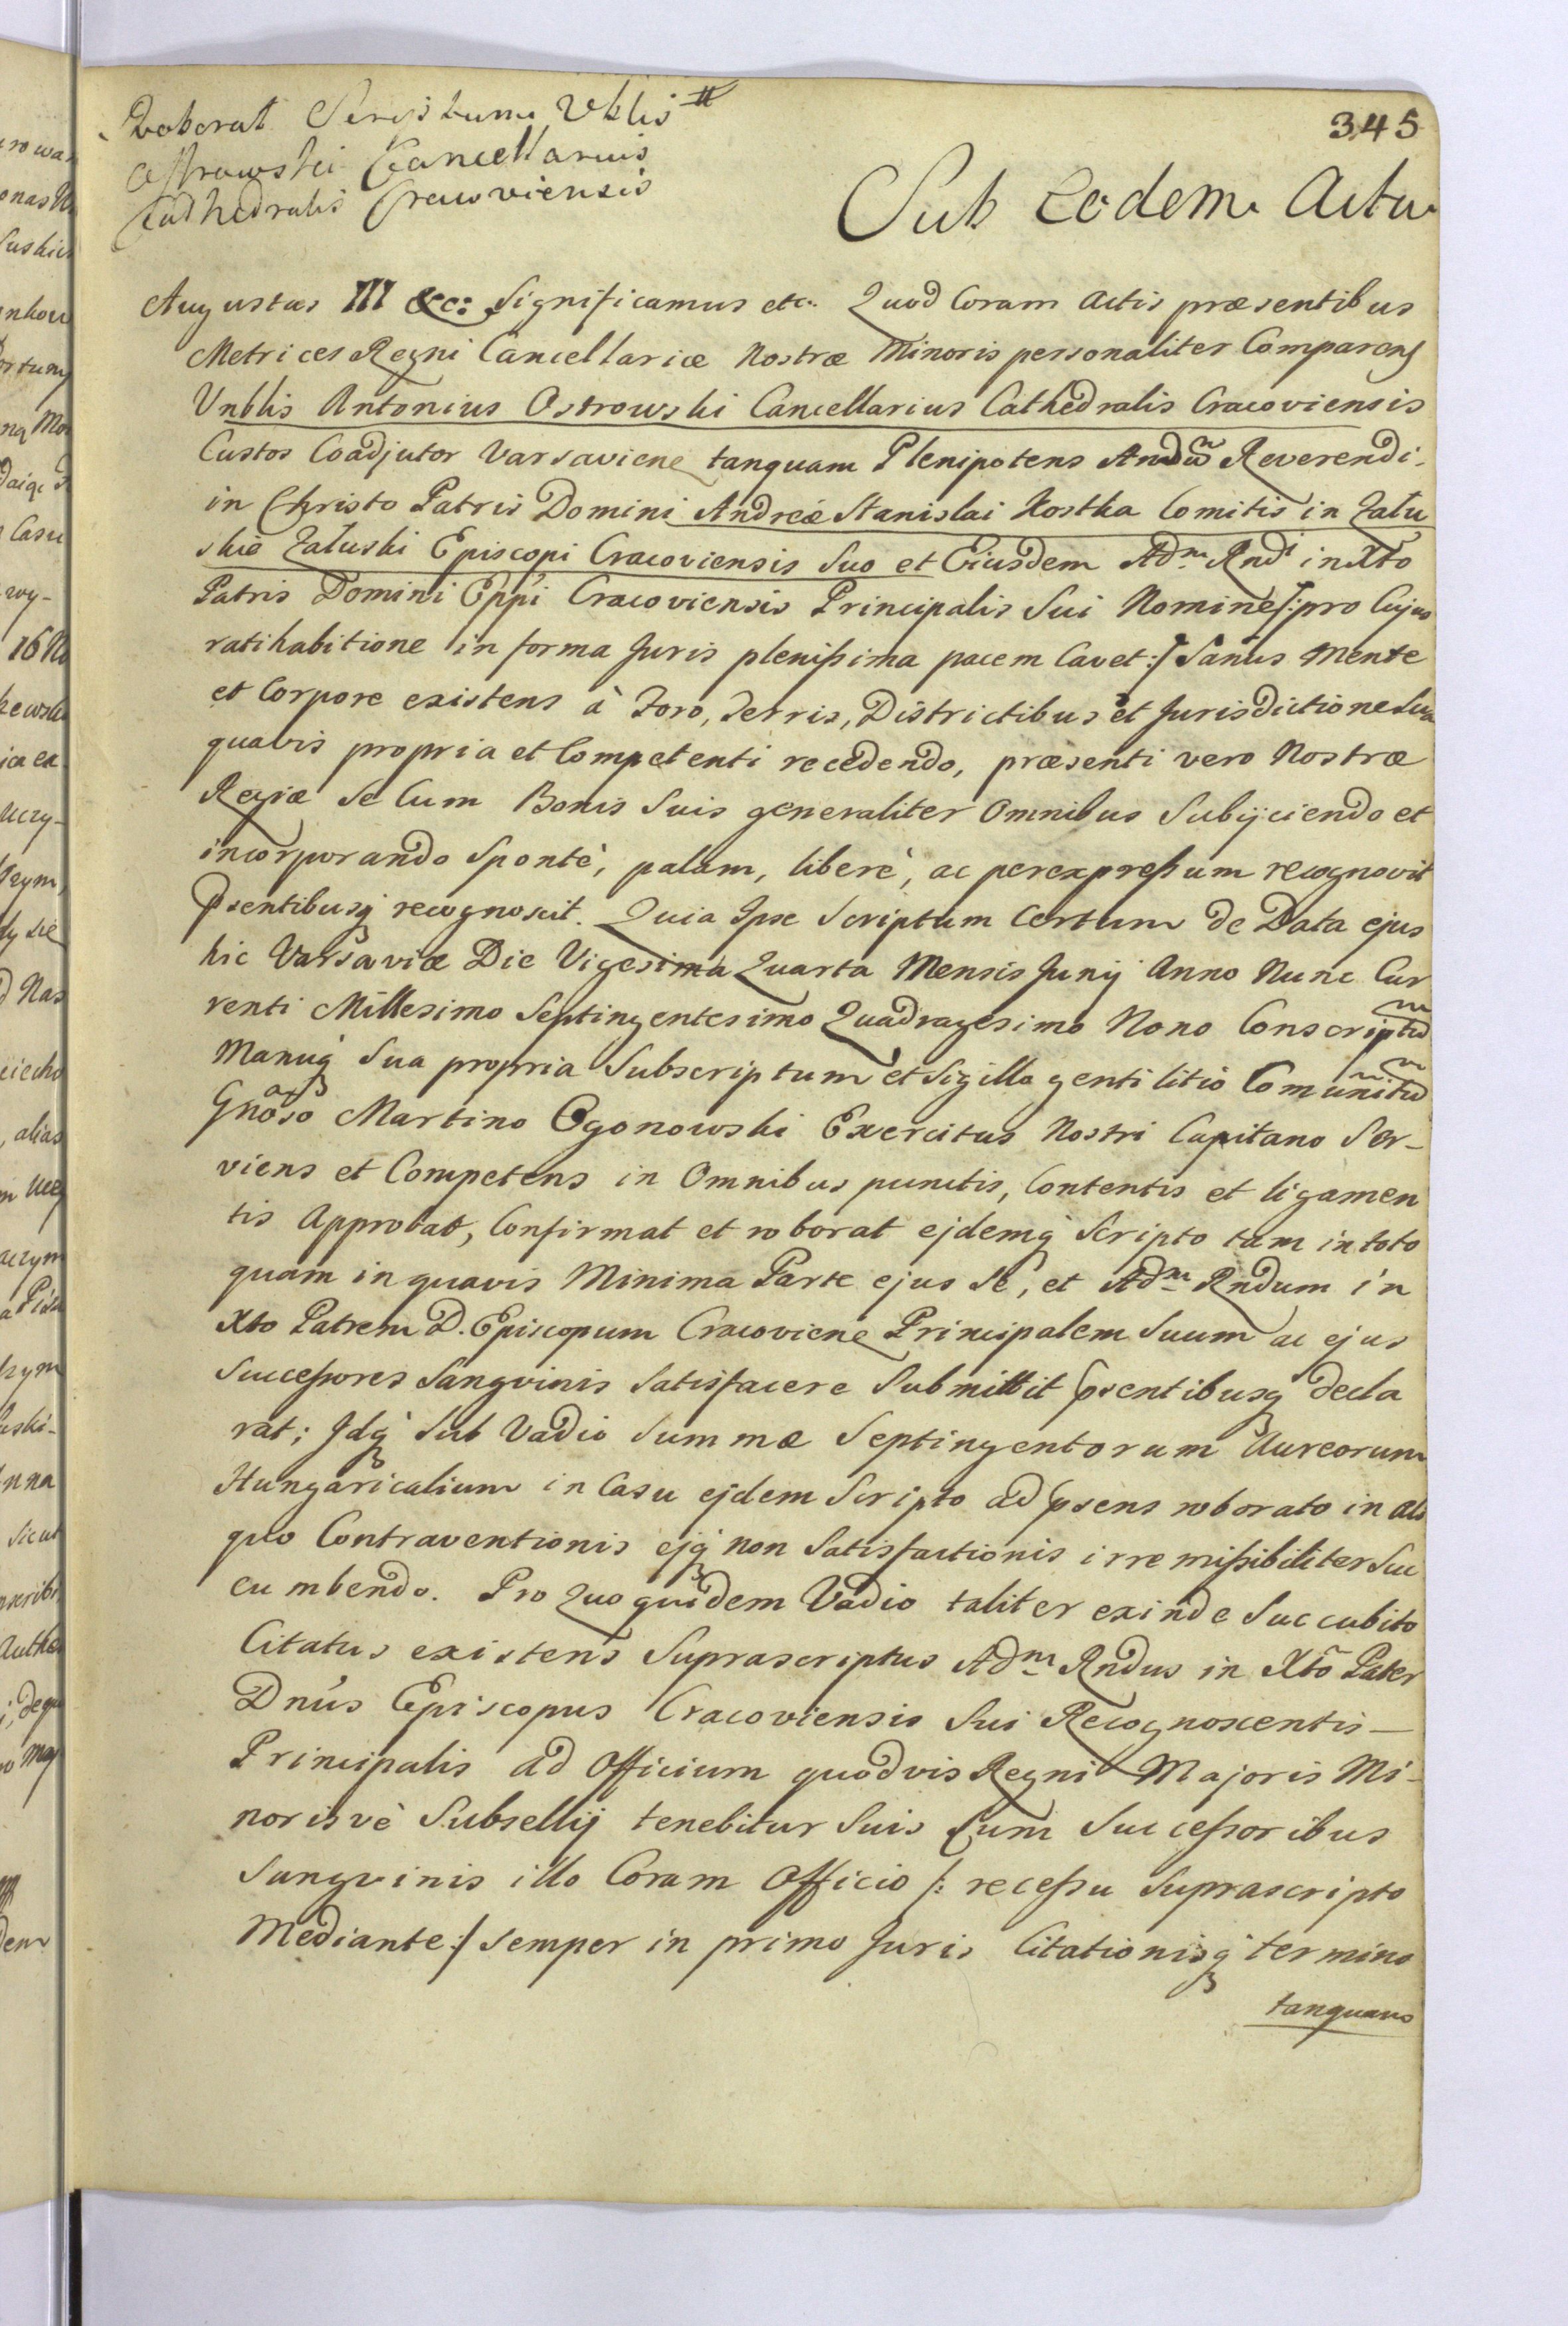 345
Roborat Scriptum Vblis
Ostrowski Cancellarius
Cathedralis Cracoviensis
Sub Eodem Actu
Augustus III &c: Significamus etc. Quod Coram Actis præsentibus
Metrices Regni Cancellariæ Nostræ Minoris personaliter Comparens
Vnblis Antonius Ostrowski Cancellarius Cathedralis Cracoviensis
Custos Coadjutor Varsaviene tanquam Plenipotens Reverendi
in Christo Patris Domini Andreæ Stanislai Kostka Comitis in Zału
skie Załuski Episcopi Cracoviensis Suo et Eiusdem Adm Rndi in Xto
Patris Domini Eppi Cracoviensis Principalis Sui Nomine /: pro Cujus
ratihabitione in forma Juris plenissima pacem Cavet :/ Sanus Mente
et Corpore existens à Foro, Terris, Districtibus et Jurisdictione Sua
quavis propria et Competenti recedendo, præsenti vero Nostræ
Regiæ Se Cum Bonis Suis generaliter Omnibus Subijciendo et
incorporando Spontè, palam, liberè, ac perexpressum recognovit
Psentibusq recognoscit. Quia Ipse Scriptum Certum de Data ejus
hic Varsaviæ Die Vigesima Quarta Mensis Junij Anno Nunc Cur
renti Millesimo Septingentesimo Quadragesimo Nono Conscriptũ
Manuq Sua propria Subscriptum et Sigillo gentilitio Comũnitũ
Gnoso Martino Ogonowski Exercitus Nostri Capitano Ser-
viens et Competens in Omnibus punctis, Contentis et ligamen
tis Approbat, Confirmat et roborat ejdemq Scripto tam in toto
quam in quavis Minima Parte ejus Se, et Adm Rndum in
Xto Patrem D. Episcopum Cracoviene Principalem Suum ac ejus
Successores Sangvinis Satisfacere Submittit psentibusq decla
rat; Idq Sub Vadio Summæ Septingentorum Aureorum
Hungaricalium in Casu ejdem Scripto ad psens roborato in ali
quo Contraventionis ejq non Satisfactionis irremissibiliter Suc
cumbendo. Pro Quo quidem Vadio taliter exinde Succubito
Citatus existens Suprascriptus Adm Rndus in Xto Pater
Dnus Episcopus Cracoviensis Sui Recognoscentis —
Principalis ad Officium quodvis Regni Majoris Mi-
norisvè Subsellij tenebitur Suis Cum Successoribus
Sangvinis illo Coram Officio /: recessu Suprascripto
Mediante :/ semper in primo Juris Citationisq termino
tanquam